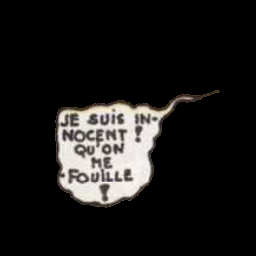 JE SUIS IN-
NOCENT !
QU'ON
ME
FOUILLE
!